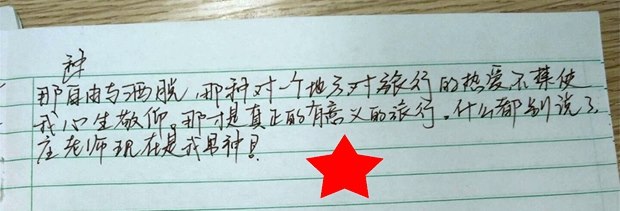 种
那自由与洒脱,那种对一个地方对旅行的热爱不禁使
我心生敬仰。那才是真正的有意义的旅行。什么都别说了,
庄老师现在是我男神!